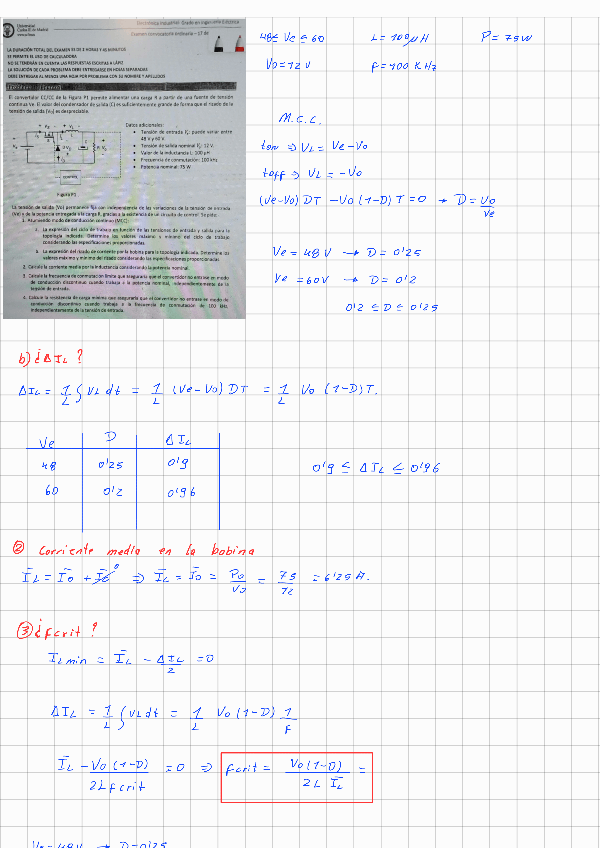 Universidad
Carlos III de Madrid
www.uc3m.es
Electrónica Industrial. Grado en Ingeniería Eléctrica
Examen convocatoria ordinaria – 17 de
LA DURACIÓN TOTAL DEL EXAMEN ES DE 2 HORAS Y 45 MINUTOS
SE PERMITE EL USO DE CALCULADORA
NO SE TENDRÁN EN CUENTA LAS RESPUESTAS ESCRITAS A LÁPIZ
LA SOLUCIÓN DE CADA PROBLEMA DEBE ENTREGARSE EN HOJAS SEPARADAS
DEBE ENTREGAR AL MENOS UNA HOJA POR PROBLEMA CON SU NOMBRE Y APELLIDOS
El convertidor CC/CC de la Figura P1 permite alimentar una carga R a partir de una fuente de tensión
continua Ve. El valor del condensador de salida (C) es suficientemente grande de forma que el rizado de la
tensión de salida (Vo) es despreciable.
Datos adicionales:
• Tensión de entrada Ve: puede variar entre
48 V y 60 V
• Tensión de salida nominal Vo: 12 V.
• Valor de la inductancia L: 100 µH
• Frecuencia de conmutación: 100 kHz
• Potencia nominal: 75 W
CONTROL
Figura P1
La tensión de salida (Vo) permanece fija con independencia de las variaciones de la tensión de entrada
(Ve) y de la potencia entregada a la carga R, gracias a la existencia de un circuito de control. Se pide:
1. Asumiendo modo de conducción continuo (MCC):
a. La expresión del ciclo de trabajo en función de las tensiones de entrada y salida para la
topología indicada. Determine los valores máximo y mínimo del ciclo de trabajo
considerando las especificaciones proporcionadas.
b. La expresión del rizado de corriente por la bobina para la topología indicada. Determine los
valores máximo y mínimo del rizado considerando las especificaciones proporcionadas.
2. Calcule la corriente media por la inductancia considerando la potencia nominal.
3. Calcule la frecuencia de conmutación límite que aseguraría que el convertidor no entrase en modo
de conducción discontinuo cuando trabaja a la potencia nominal, independientemente de la
tensión de entrada.
4. Calcule la resistencia de carga máxima que aseguraría que el convertidor no entrase en modo de
conducción discontinuo cuando trabaja a la frecuencia de conmutación de 100 kHz,
independientemente de la tensión de entrada.
48 ≤ Ve ≤ 60 L = 100µH P = 75W
Vo = 12V f = 100 KHz
M.C.C.
ton ⇒ VL = Ve-Vo
toff ⇒ VL = -Vo
(Ve-Vo) DT - Vo (1-D) T = 0 → D = Vo/Ve
Ve = 48V → D = 0'25
Ve = 60V → D = 0'2
0'2 ≤ D ≤ 0'25
b) ¿ΔIL?
ΔIL = 1/L ∫ VL dt = 1/L (Ve-Vo) DT = 1/L Vo (1-D) T.
Ve D ΔIL
48 0'25 0'9
60 0'2 0'96
0'9 ≤ ΔIL ≤ 0'96
② Corriente media en la bobina
IL = Io + Ic 0 ⇒ IL = Io = Po/Vo = 75/12 = 6'25A.
③ ¿fcrit?
ILmin = IL - ΔIL/2 = 0
ΔIL = 1/L ∫ VL dt = 1/L Vo (1-D) 1/f
IL - Vo (1-D)/2Lfcrit = 0 ⇒ fcrit = Vo (1-D)/2L IL =
Ve = 48V → D = 0'25